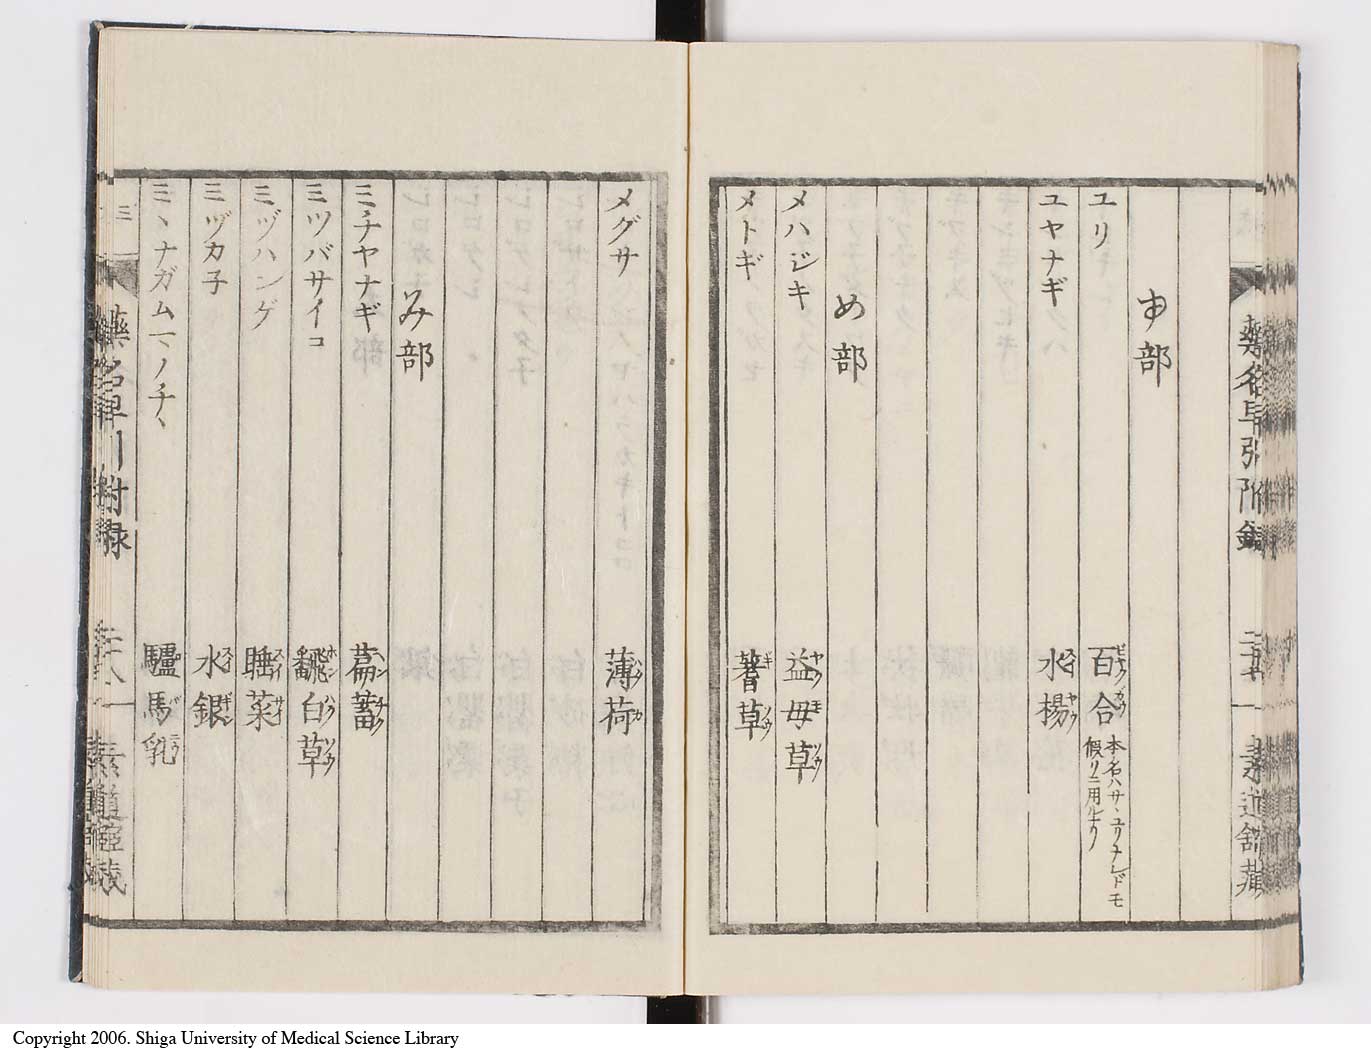 ゆ部
ユリ 百合 ビヤクカウ 本名ハサヽユリナレドモ
假リニ用ルナリ
ユヤナギ 水楊 スイヤウ
め部
メハジキ 益母草 ヤクモソウ
メトギ 蓍草 ギソウ
藥名早引附録
素道館蔵
メグサ 薄荷 ハツカ
み部
ミチヤナギ 萹蓄 ヘンチク
ミツバサイコ 飜白草 ホンハクソウ
ミヅハンゲ 睡菜 スイサイ
ミヅカ子 水銀 スイギン
驢馬乳 ロバニウ
ミ
藥名早引附録
二十八
素道館蔵
Copyright 2006. Shiga University of Medical Science Library